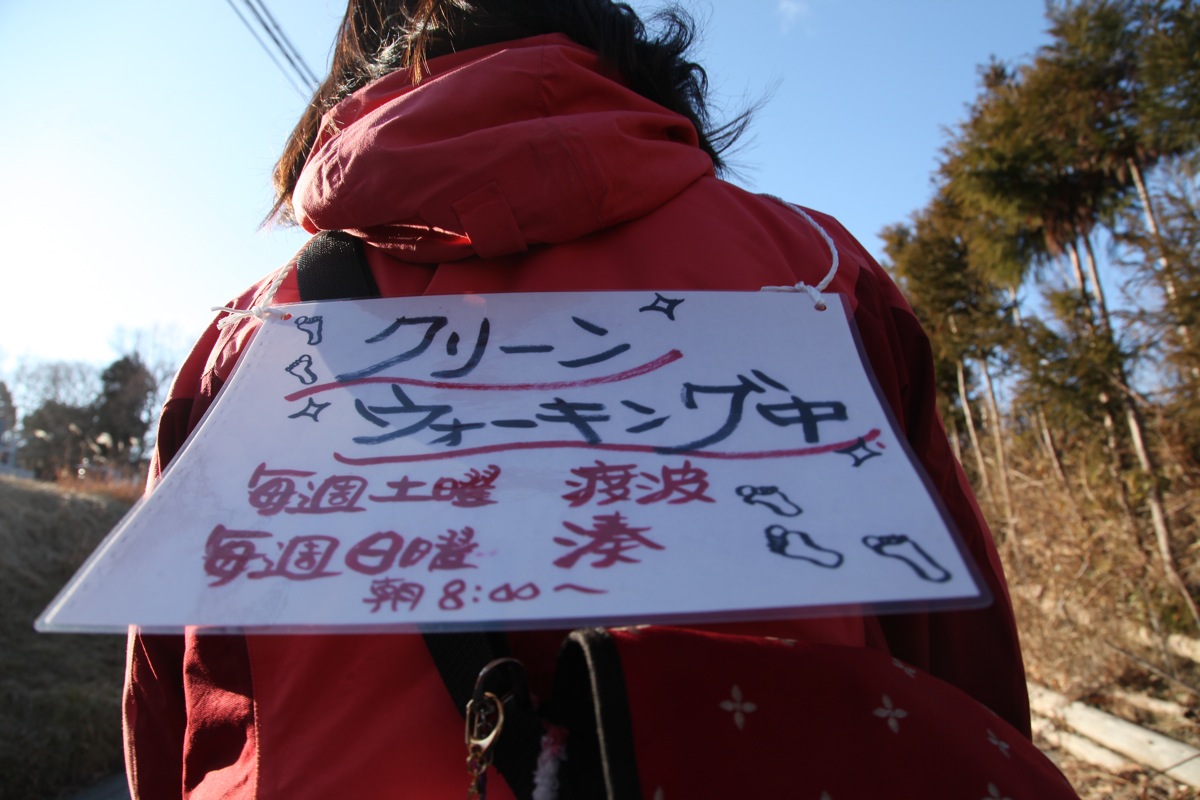 クリーン
ウォーキング中
毎週土曜 渡波
毎週日曜 湊
朝8:00〜